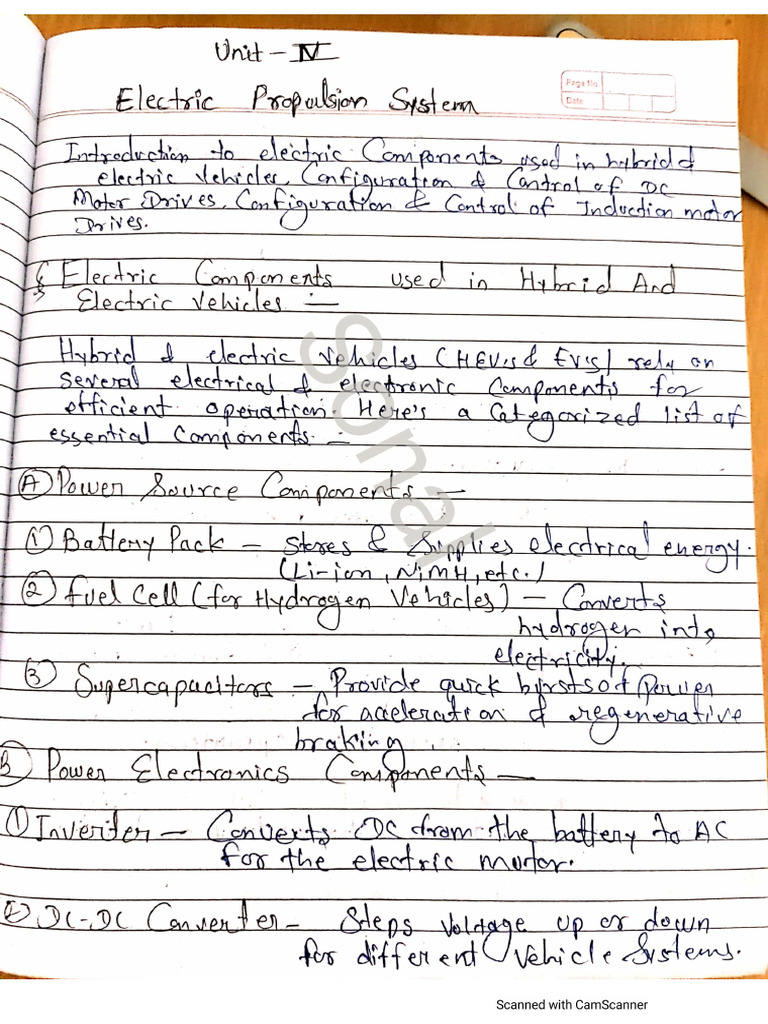 Unit - IV
Page No.
Date
Electric Propulsion System
Introduction to electric Components used in hybrid &
electric vehicles, Configuration & Control of DC
Motor Drives, Configuration & Control of Induction motor
Drives.
Electric Components used in Hybrid And
Electric Vehicles :-
Hybrid & electric vehicles (HEV's & EV's) rely on
several electrical & electronic components for
efficient operation. Here's a Categorized list of
essential components. -
(A) Power Source Components -
(1) Battery Pack - Stores & Supplies electrical energy.
(Li-ion, NiMH, etc.)
(2) Fuel Cell (for Hydrogen Vehicles) - Converts
hydrogen into
electricity.
(3) Supercapacitors - Provide quick bursts of power
for acceleration & regenerative
braking.
(B) Power Electronics Components -
(1) Inverter - Converts DC from the battery to AC
for the electric motor.
(2) DC-DC Converter - Steps Voltage up or down
for different Vehicle Systems.
Sonal
Scanned with CamScanner